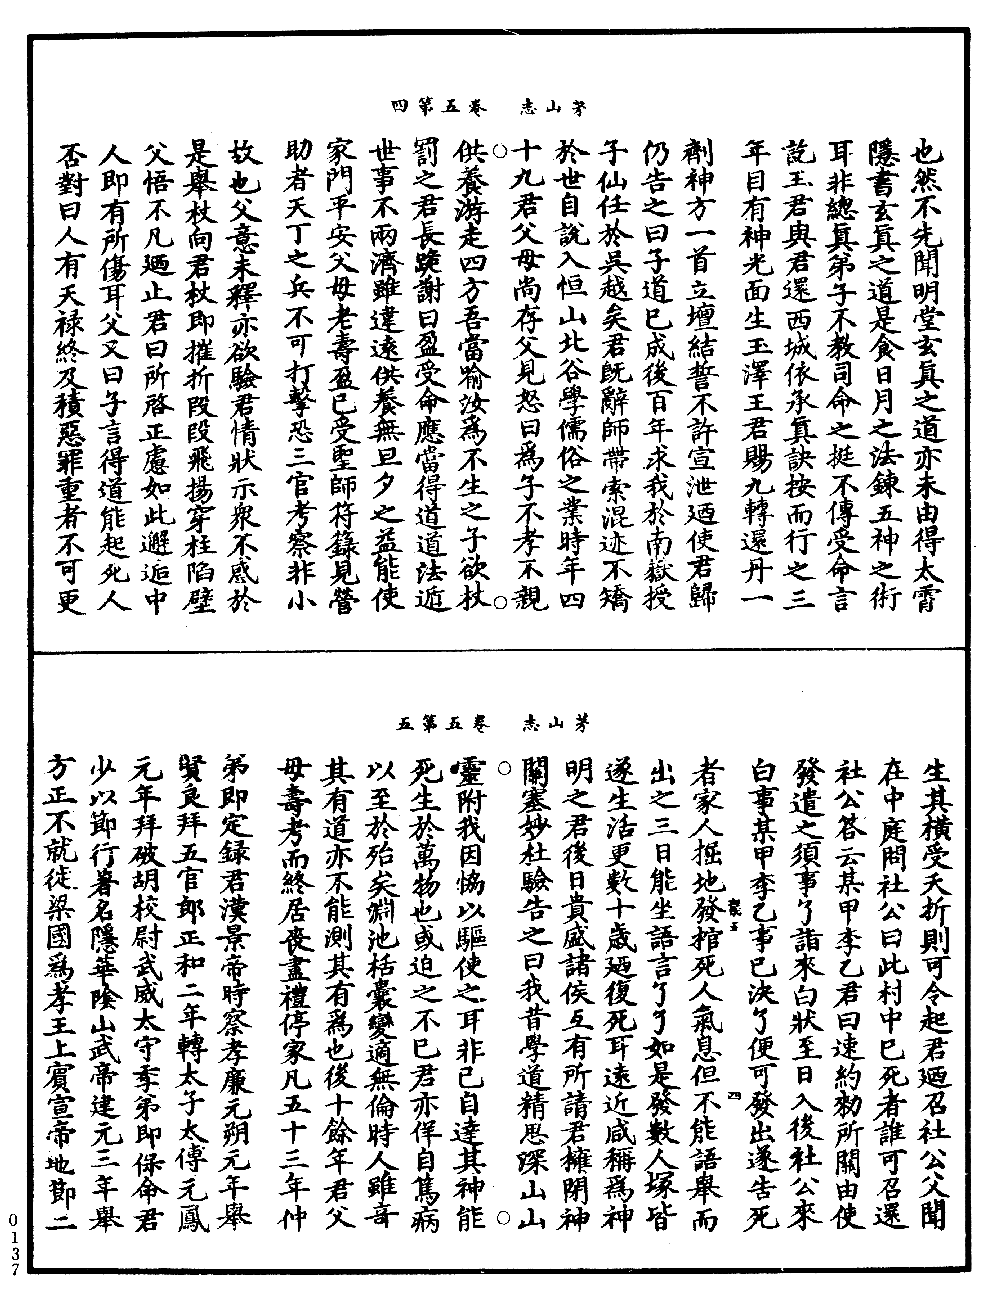 茅山志　卷五第四
也然不先聞明堂玄真之道亦未由得太霄
隱書玄真之道是食日月之法鍊五神之術
耳非總真弟子不教司命之挺不傳受命言
訖王君與君還西城依承真訣按而行之三
年目有神光面生玉澤王君賜九轉還丹一
劑神方一首立壇結誓不許宣泄廼使君歸
仍告之曰子道已成後百年求我於南嶽授
子仙任於吳越矣君既辭師帶索混迹不矯
於世自說入恒山北谷學儒俗之業時年四
十九君父母尚存父見怒曰爲子不孝不親
供養游走四方吾當喻汝爲不生之子欲杖
罰之君長跪謝曰盈受命應當得道道法逅
世事不兩濟雖違遠供養無旦夕之益能使
家門平安父母老壽盈已受聖師符籙見營
助者天丁之兵不可打擊恐三官考察非小
故也父意未釋亦欲驗君情狀示衆不惑於
是舉杖向君杖即摧折段段飛揚穿柱陷壁
父悟不凡廼止君曰所啓正慮如此邂逅中
人即有所傷耳父又曰子言得道能起死人
否對曰人有天禄終及積惡罪重者不可更
茅山志　卷五第五
生其橫受夭折則可令起君廼召社公父聞
在中庭問社公曰此村中已死者誰可召還
社公答云某甲李乙君曰速約勑所關由使
發遣之須事了詣來白狀至日入後社公來
白事某甲李乙事已決了便可發出遂告死
者家人掘地發棺死人氣息但不能語舉而
出之三日能坐語言了了如是發數人塚皆
遂生活更數十歲廼復死耳遠近咸稱爲神
明之君後日貴盛諸侯互有所請君擁閉神
關塞妙杜驗告之曰我昔學道精思深山山
靈附我因恊以驅使之耳非已自達其神能
死生於萬物也或迫之不已君亦佯自篤病
以至於殆矣淵池括囊變適無倫時人雖竒
其有道亦不能測其有爲也後十餘年君父
母壽考而終居喪盡禮停家凡五十三年仲
弟即定録君漢景帝時察孝廉元朔元年舉
賢良拜五官郎正和二年轉太子太傅元鳳
元年拜破胡校尉武威太守季弟即保命君
少以節行著名隱華陰山武帝建元三年舉
方正不就徒梁國爲孝王上賓宣帝地節二
0137